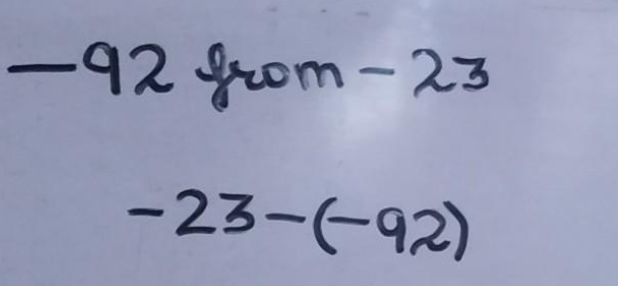 -92 from -23
-23-(-92)